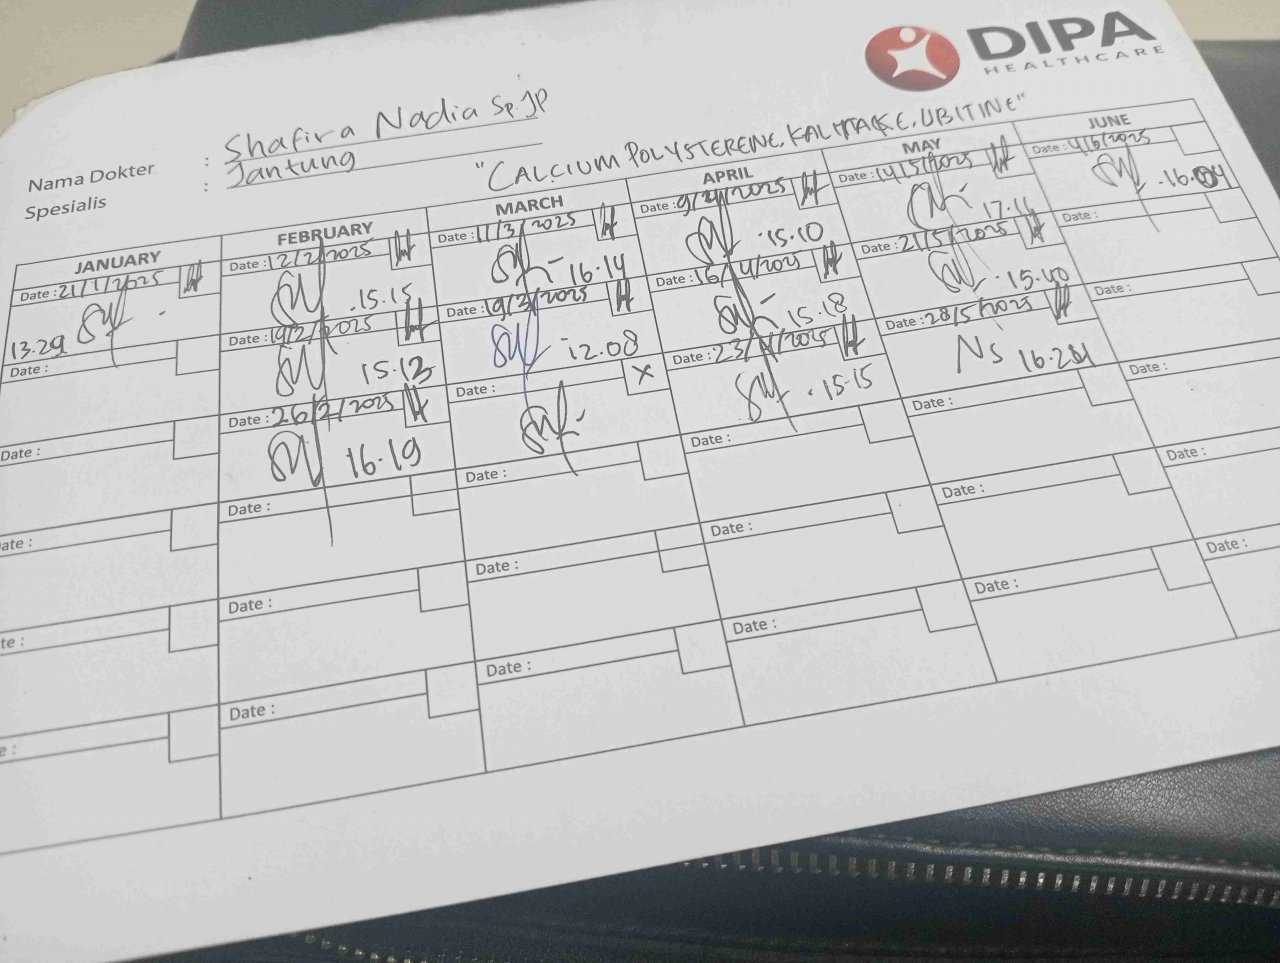 DIPA
HEALTHCARE
Nama Dokter : Shafira Nadia Sp.JP
Spesialis : Jantung
"CALCIUM POLYSTEREINE, KALMTAKE, UBITINE"
JANUARY
Date : 21/1/2025
13.29
Date :
Date :
ate :
te :
e :
FEBRUARY
Date : 12/2/2025
15.15
19/2/2025
15.13
Date : 26/2/2025
16.19
Date :
Date :
Date :
MARCH
Date : 11/3/2025
16.14
Date : 19/3/2025
12.08
Date : X
Date :
Date :
Date :
APRIL
Date : 9/4/2025
15.10
Date : 16/4/2025
15.18
Date : 23/4/2025
15.15
Date :
Date :
Date :
MAY
Date : 14/5/2025
17.11
Date : 21/5/2025
15.40
Date : 28/5/2025
Ns 16.24
Date :
Date :
Date :
JUNE
Date : 4/6/2025
16.04
Date :
Date :
Date :
Date :
Date :